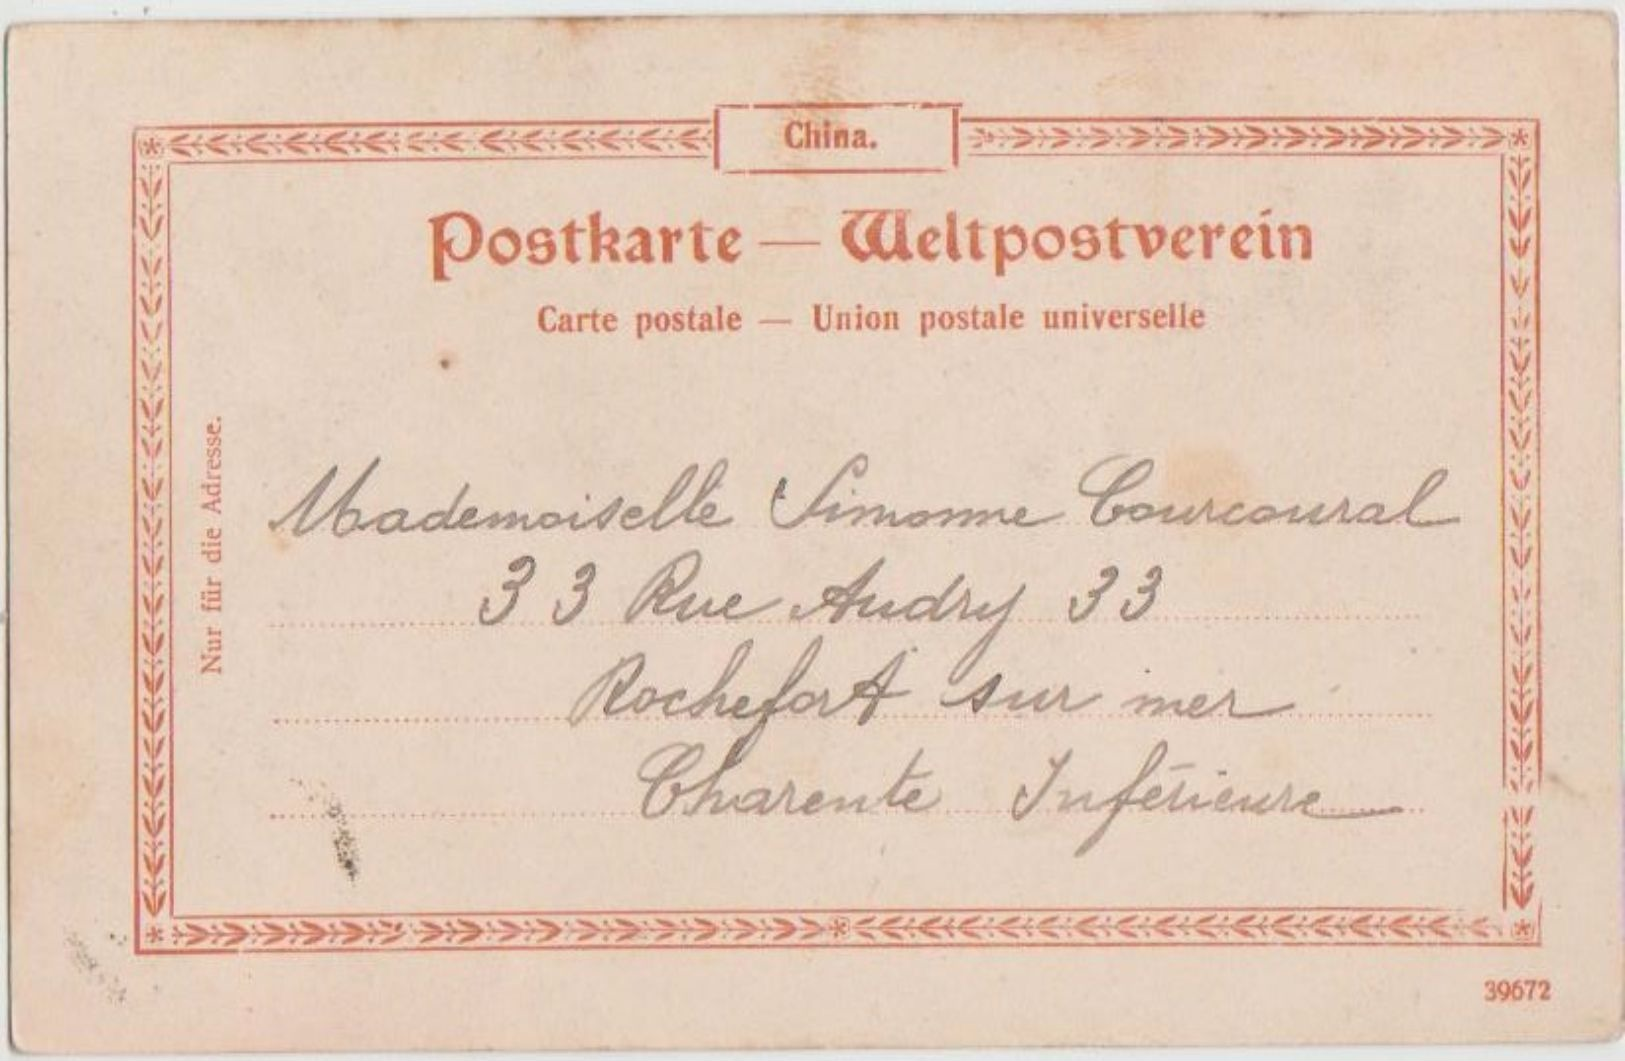 China.
Postkarte — Weltpostverein
Carte postale — Union postale universelle
Nur für die Adresse.
Mademoiselle Simonne Courcoural
33 Rue Audry 33
Rochefort sur mer
Charente Inférieure
39672